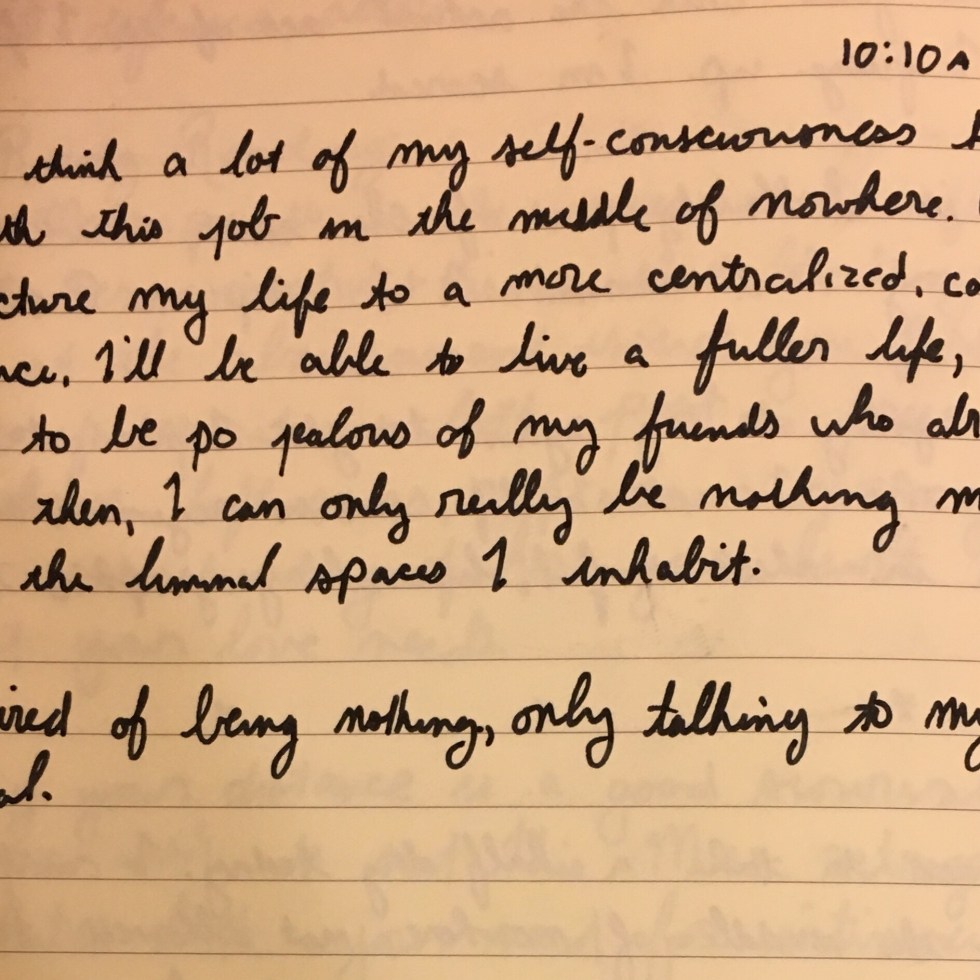 10:10A
think a lot of my self-consciousness
this job in the middle of nowhere.
cture my life to a more centralized, co
nce, I'll be able to live a fuller life,
to be so jealous of my friends who alr
then, I can only really be nothing m
the liminal spaces I inhabit.
ired of being nothing, only talking to my
al.